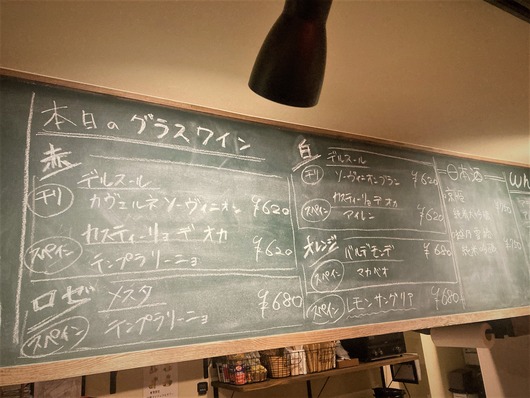 本日のグラスワイン
赤
デルスール
チリ カヴェルネソーヴィニオン ¥620
カスティーリョデオカ
スペイン テンプラリーニョ ¥620
ロゼ メスタ
スペイン テンプラリーニョ ¥680
白 デルスール
チリ ソーヴィニオンブラン ¥620
カスティーリョデオカ
スペイン アイレン
オレンジ バルデモンデ ¥680
スペイン マカベオ
スペイン レモンサングリア ¥680
日本酒
Wh